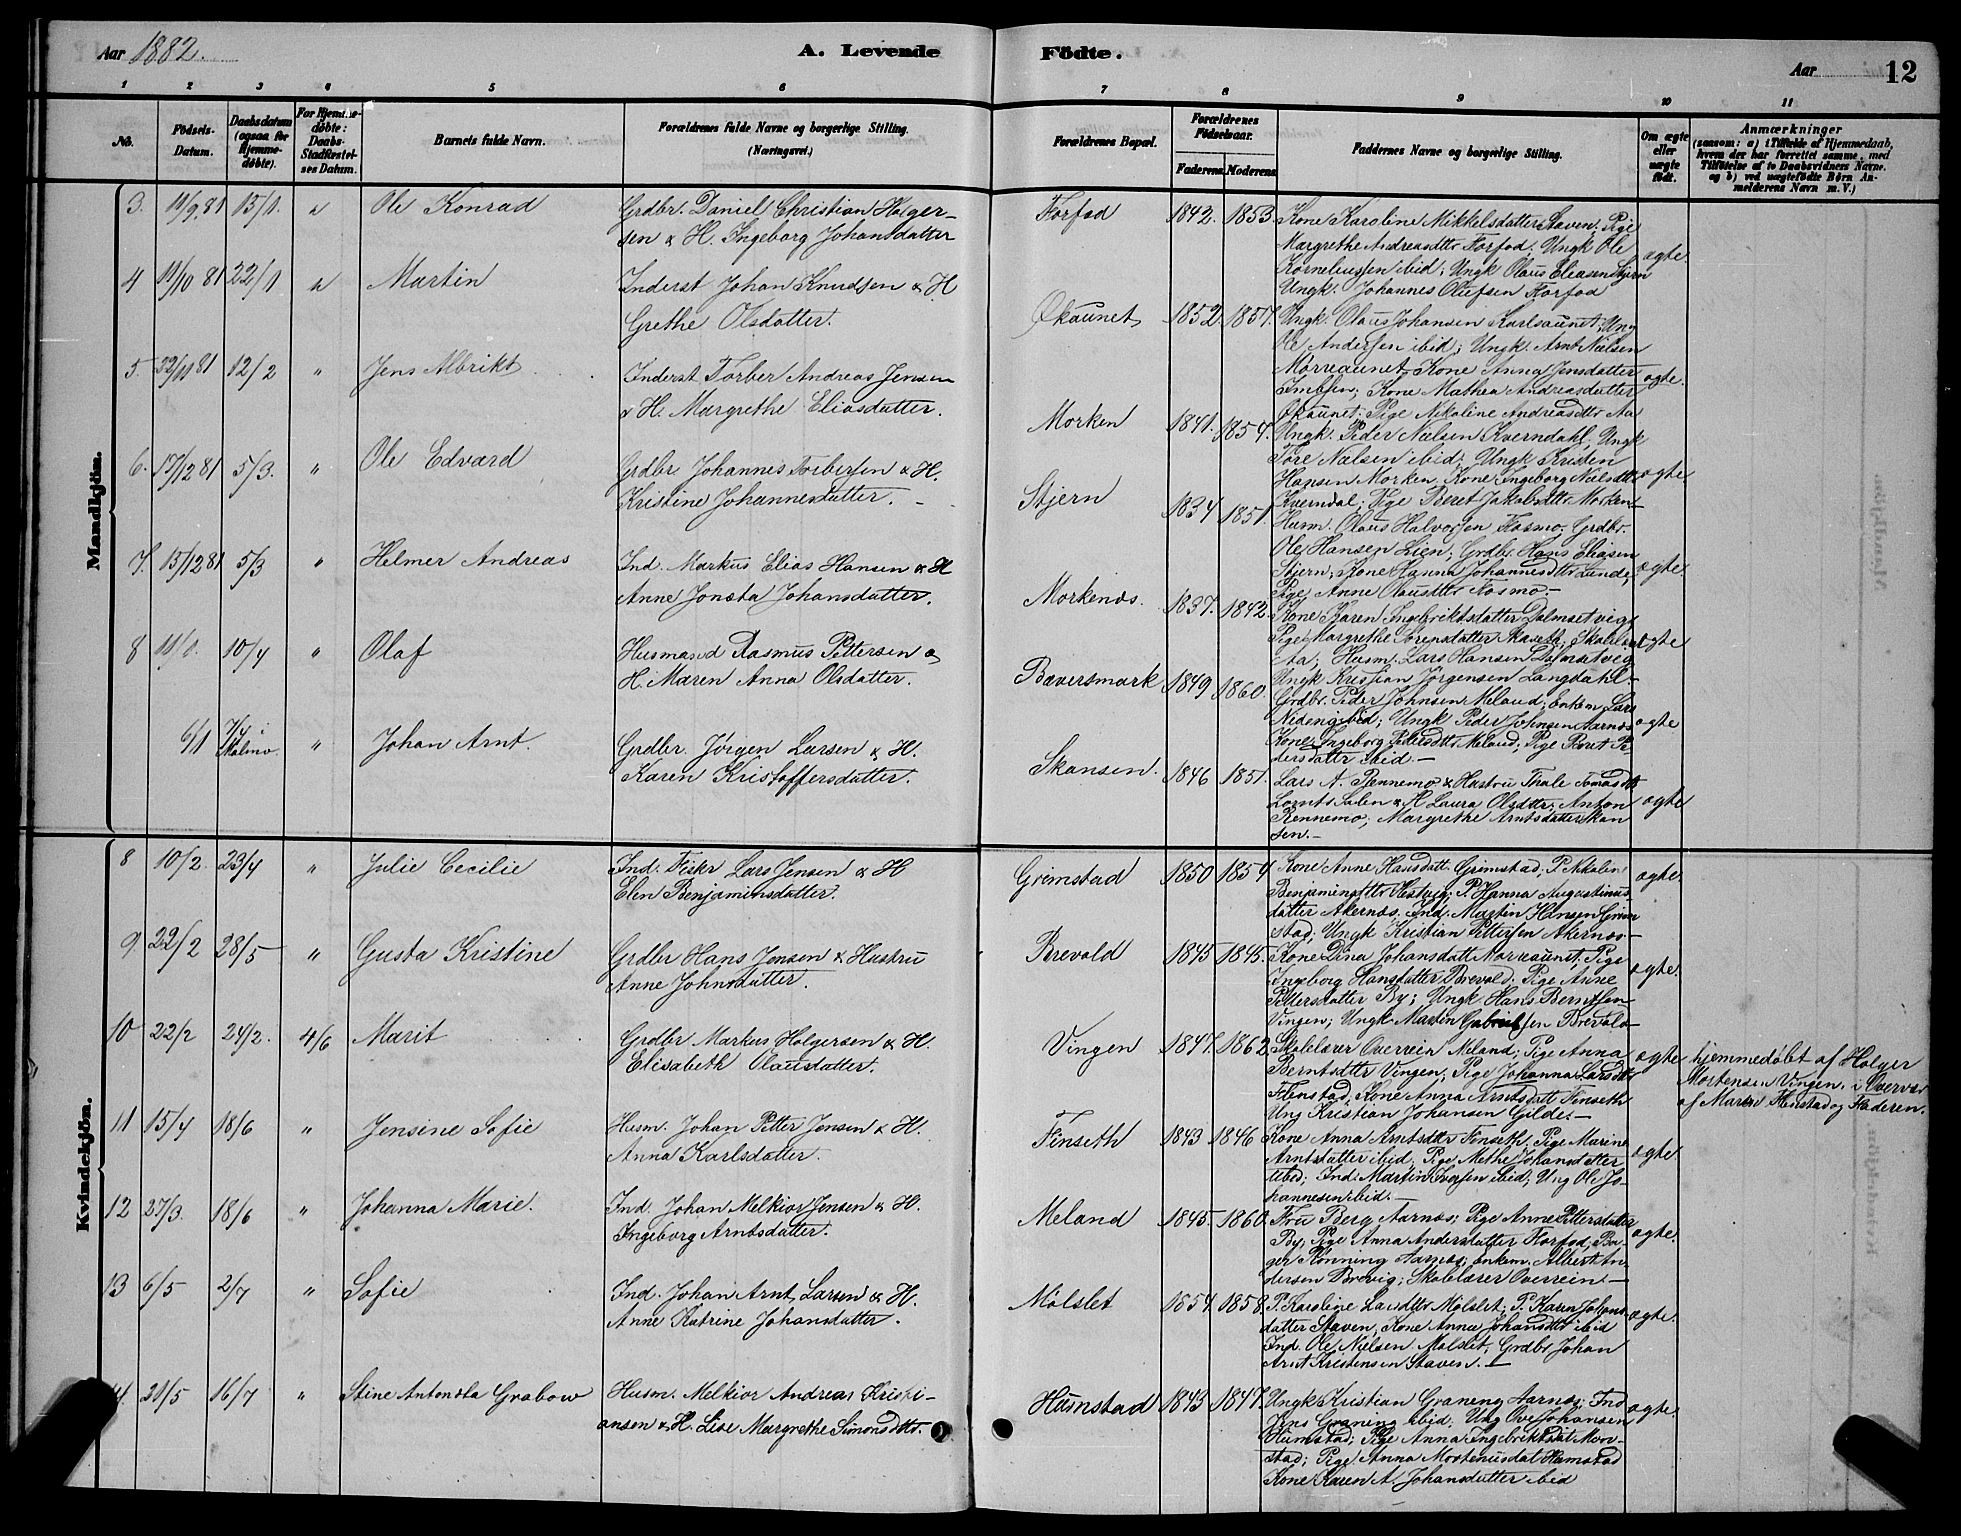 Aar 1882.
A. Levende Födte.
Aar 12
1 2 3 4 5 6 7 8 9 10 11
No.
Födsels-Datum.
Daabsdatum (ogsaa for Hjemmedøbte).
For Hjemmedøbte: Daabs-Stadfæstelses Datum.
Barnets fulde Navn.
Forældrenes fulde Navne og borgerlige Stilling. (Næringsvei.)
Forældrenes Bopæl.
Forældrenes Födselsaar.
Faderens Moderens
Faddernes Navne og borgerlige Stilling.
Om ægte eller uægte födt.
Anmærkninger
(saasom: a) i Tilfælde af Hjemmedaab,
hvem der har forrettet samme, med
Tilföielse af to Daabsvidners Navne.
og b) ved uægtefödte Börn An-
melderens Navn m. V.)
Mandkjön.
3. 11/9 81 15/1. Ole Konrad
Grdbr. Daniel Christian Holger-
sen & H. Ingeborg Johansdatter
Forfod 1842. 1853.
Kone Karoline Mikkelsdatter Staven; Pige
Margrethe Andreasdtr Forfod; Ungk Ole
Korneliussen ibid; Ungk Olaus Eliasen Stjern
Ungk. Johannes Olufsen Forfod
ægte.
4 11/10 81 22/1 Martin
Inderst Johan Knudsen & H
Grethe Olsdatter.
Økaunet 1852. 1857.
Ungk. Olaus Johansen Karlsaunet; Ung
Ole Andersen ibid; Ungk. Arnt Nielsen
Morreaunet; Kone Anna Jensdatter
Kone Mathea Andreasdatter
Økaunet; Pige Nikoline Andreasdtr Aa
ægte.
5. 22/11 81 12/2 " Jens Albrikt
Inderst Torber Andreas Jensen
& H. Margrethe Eliasdatter.
Morken 1841. 1854.
Ungk. Peder Nielsen Kverndahl; Ungk
Tore Nielsen ibid; Ungk Kristen
Hansen Morken; Kone Ingeborg Nielsdtr
Kverndal; Pige Beret Jakobsdtr Morken
ægte
6. 17/12 81 5/3. " Ole Edvard
Grdbr Johannes Torbersen & H.
Kristine Johannesdatter.
Stjern 1834 1851.
Husm. Olaus Halvorsen Fosmo; Grdbr.
Ole Hansen Lien; Grdbr Hans Eliasen
Stjern; Kone Hanna Johannesdtr Lunde
Pige Anne Olausdtr Fosmo.
ægte.
7. 15/12 81 5/3 " Helmer Andreas
Ind. Markus Elias Hansen & H
Anne Jonsta Johansdatter.
Morkenæs. 1837. 1842.
Kone Karen Ingebriktsdatter Dalmsetvig
Pige Margrethe Sørensdatter
Aa; Husm. Lars Hansen Dalmsetvig
Ungk Kristian Jörgensen Langdahl.
ægte
8 11/1. 10/4 " Olaf
Husmand Rasmus Pettersen &
H. Maren Anna Olsdatter.
Bæversmark 1849 1860.
Grdbr. Peder Johnsen Meland; Enkem. Lars
ibid; Ungk Peder Johnsen Aarnæs
Kone Ingeborg Pettersdtr Meland; Pige Beret Pe
dersdattr ibid.
ægte
6/1 " Johan Arnt.
Grdbr. Jörgen Larsen & H.
Karen Kristoffersdatter.
Skansen. 1846 1851.
Lars A. Rennemo & Hustru Thale Tomasdtr
& H Laura Olsdtr; Anton
Rennemo; Margrethe Arntsdatter Skan
sen.
ægte
Kvindekjön.
8 10/2. 23/4 " Julie Cecilie
Ind. Fisker Lars Jensen & H
Elen Benjaminsdatter.
Grimstad 1850 1854
Kone Anne Hansdatt. Grimstad; P. Nikolin
Benjaminsdtr P. Hanna Augustinus
datter Akernæs; Ind. Martin Hansen Grim
stad; Ungk Kristian Pettersen Akernæs
ægte.
9. 22/2 28/5 " Gusta Kristine
Grdbr Hans Jensen & Hustru
Anne Johnsdatter.
Brevold 1845 1845.
Kone Dina Johansdatt Morreaunet; Pige
Ingeborg Hansdatter Brevold; Pige Anne
Pettersdatter By; Ungk Hans Berntsen
Vingen; Ungk Martin Gabrielsen Brevold
ægte.
10 22/2 24/2. 4/6 Marit
Grdbr Markus Holgersen & H.
Elisabeth Olausdatter.
Vingen 1847. 1862
Skolelærer Overrein Meland; Pige Anna
Berntsdttr Vingen; Pige Johanna Larsdtr
Flenstad; Kone Anna Arntsdatt Finseth
Ung Kristian Johansen Gilde.
ægte
hjemmedøbt af Holger
Mortensen Vingen, i Overvær
af Maren Flenstad og Faderen.
11 15/4 18/6 " Jensine Sofie
Husm. Johan Petter Jensen & H.
Anna Karlsdatter.
Finseth 1843 1846
Kone Anna Arntsdtr Finseth; Pige Marine
Arntsdatter ibid; Pige Methe Johansdatter
ibid; Ind. Martin Iversen ibid; Ung Ole Jo-
hannesen ibid.
ægte
12 27/3. 18/6 " Johanna Marie.
Ind. Johan Melkior Jensen & H.
Ingeborg Arntsdatter.
Meland 1845. 1860.
Fru Berg Aarnæs; Pige Anne Pettersdatter
By; Pige Anna Andersdatter Forfod; Ba-
ger Rönning Aarnæs; Enkem. Albert An-
dersen Brevig; Skolelærer Overrein.
ægte.
13 6/5 2/7 " Sofie
Ind. Johan Arnt Larsen & H.
Anne Katrine Johansdatter.
Mølslet 1854. 1858.
P. Karoline Larsdtr Mølslet; P. Karen Johans
datter Staven; Kone Anne Johansdtr ibid
Ind. Ole Nielsen Molslet; Grdbr Johan
Arnt Kristensen Staven.
ægte.
14. 21/5 16/7 " Stine Antonsta Grabow
Husm. Melkior Andreas Kristi-
ansen & H. Lise Margrethe Simonsdtr.
Humstad 1843 1847.
Ungk Kristian Graneng Aarnæs; Ind
Jens Graneng ibid; Ung Ove Johansen
Humstad; Pige Anna Ingebriktsdat Mor-
stad; Pige Anna Mortensdat Humstad
Kone Karen A. Johansdatter ibid
ægte.